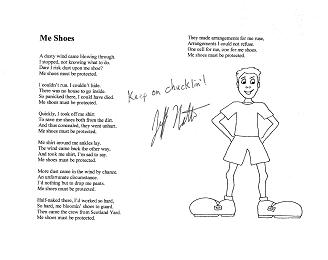 Me Shoes
A dusty wind came blowing through.
I stopped, not knowing what to do.
Dare I risk dust upon me shoe?
Me shoes must be protected.
I couldn't run. I couldn't hide.
There was no house to go inside.
So panicked there, I could have died.
Me shoes must be protected.
Quickly, I took off me shirt
To save me shoes both from the dirt.
And thus concealed, they went unhurt.
Me shoes must be protected.
Me shirt around me ankles lay.
The wind came back the other way.
And took me shirt, I'm sad to say.
Me shoes must be protected.
More dust came in the wind by chance.
An unfortunate circumstance.
I'd nothing but to drop me pants.
Me shoes must be protected.
Half-naked there, I'd worked so hard,
So hard, me bloomin' shoes to guard.
Then came the crew from Scotland Yard.
Me shoes must be protected.
They made arrangements for me ruse,
Arrangements I could not refuse.
One cell for me, one for me shoes.
Me shoes must be protected.
Keep on chucklin'!
Jeff